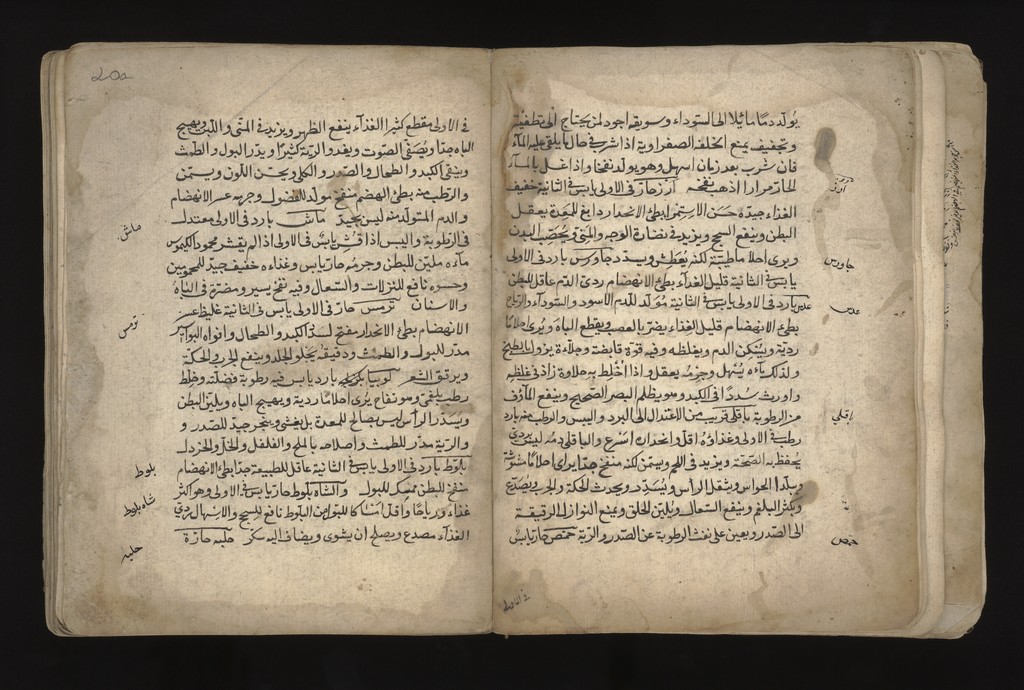 يولد دما مائلا الى السوداء وسويقه اجود لمن يحتاج الى تطفية
وتجفيف يمنع الخلفه الصفراوية اذا شرب في حال ما يلقى عليه الماء
فان شرب بعد زمان اسهل وهو يولد نفخا واذا غسل بالماء
الحار مرارا اذهب نفخه ارز حار في الاولى يابس في الثانية خفيف
الغذاء جيده حسن الاستمراء بطئ الانحدار دابغ للمعدة يعقل
البطن وينفع السحج ويزيد في نضارة الوجه والمنى ويخصب البدن
ويرى احلاما طيبة لكنه يعطش ويسدد جاورس بارد في الاولى
يابس في الثانية قليل الغذاء بطئ الانهضام ردئ الدم عاقل للبطن
عدس بارد في الاولى يابس في الثانية مولد للدم الاسود والسوداء والرياح
بطئ الانهضام قليل الغذاء يضر بالعصب ويقطع الباه ويرى احلاما
ردية ويسكن الدم ويغلظه وفيه قوة قابضة وجلاءة يزول بالطبخ
ولذلك ماءه يسهل وجرمه يعقل واذا اخلط به حلاوة زاد في غلظه
واورث سددا في الكبد وهو يظلم البصر الصحيح وينفع المأوف
من الرطوبة باقلى قريب من الاعتدال الى البرد واليبس والرطب منه بارد
رطب في الاولى وغذاؤه اقل وانحداره اسرع والباقلى دمه ليس بردئ
يحفظ به الصحة ويزيد في اللحم ويسمن لكنه منفخ جدا يراى احلاما مشوشة
ويبلد الحواس ويثقل الرأس ويسدد ويحدث الحكة والجرب ويصدع
ويكثر البلغم وينفع السعال ويلين الحلق ويمنع النوازل الرقيقة
الى الصدر ويعين على نفث الرطوبة عن الصدر والرية حمص حار يابس
ارز
جاورس
عدس
باقلى
حمص
في الاولى
في الاولى مقطع كثير الغذاء ينفع الظهر ويزيد في المنى واللبن ويهيج
الباه جدا ويصفى الصوت ويغدو الرية كثيرا ويدر البول والطمث
وينقى الكبد والطحال والصدر والكلى ويحسن اللون ويسمن
والرطب منه بطئ الهضم منفخ مولد للفضول وجرمه عسر الانهضام
والدم المتولد منه ليس بجيد ماش بارد في الاولى معتدل
في الرطوبة واليبس اذا قشر يابس في الاولى اذا لم يقشر محمود الكيموس
ماءه ملين للبطن وجرمه حار يابس وغذاءه خفيف جيد للمحمومين
وحسوه نافع للنزلات والسعال وفيه نفخ يسير ومضرة في الباه
والاسنان ترمس حار في الاولى يابس في الثانية غليظ عسر
الانهضام بطئ الانحدار مفتح لسدد الكبد والطحال وافواه البواسير
مدر للبول والطمث ودقيقه يجلو الجلد وينفع الجرب والحكة
ويرقق الشعر لوبيا بارد يابس فيه رطوبة فضلية وخلط
رطب بلغمى وهو نفاخ يرى احلاما ردية ويهيج الباه ويلين البطن
ويسدر الراس ليس بصالح للمعدة بل يغثى وينجر جيد للصدر و
والرية مدر للطمث واصلاحه بالملح والفلفل والخل والخردل
بلوط بارد في الاولى يابس في الثانية عاقل للطبيعة جدا بطئ الانهضام
منفخ للبطن ممسك للبول والشاه بلوط حار يابس في الاولى وهو اكثر
غذاء ورياحا واقل امساكا للبول من البلوط نافع للسحج والاسهال ردئ
الغذاء مصدع ويصلح ان يشوى ويضاف اليه سكر حلبه حارة
ماش
ترمس
بلوط
شاه بلوط
حلبه